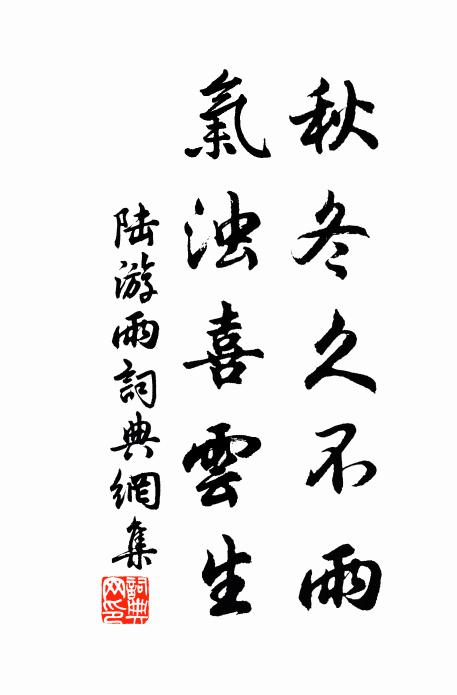 秋冬久不雨
氣浊喜雲生
陆游雨詞典網集
詞典网印